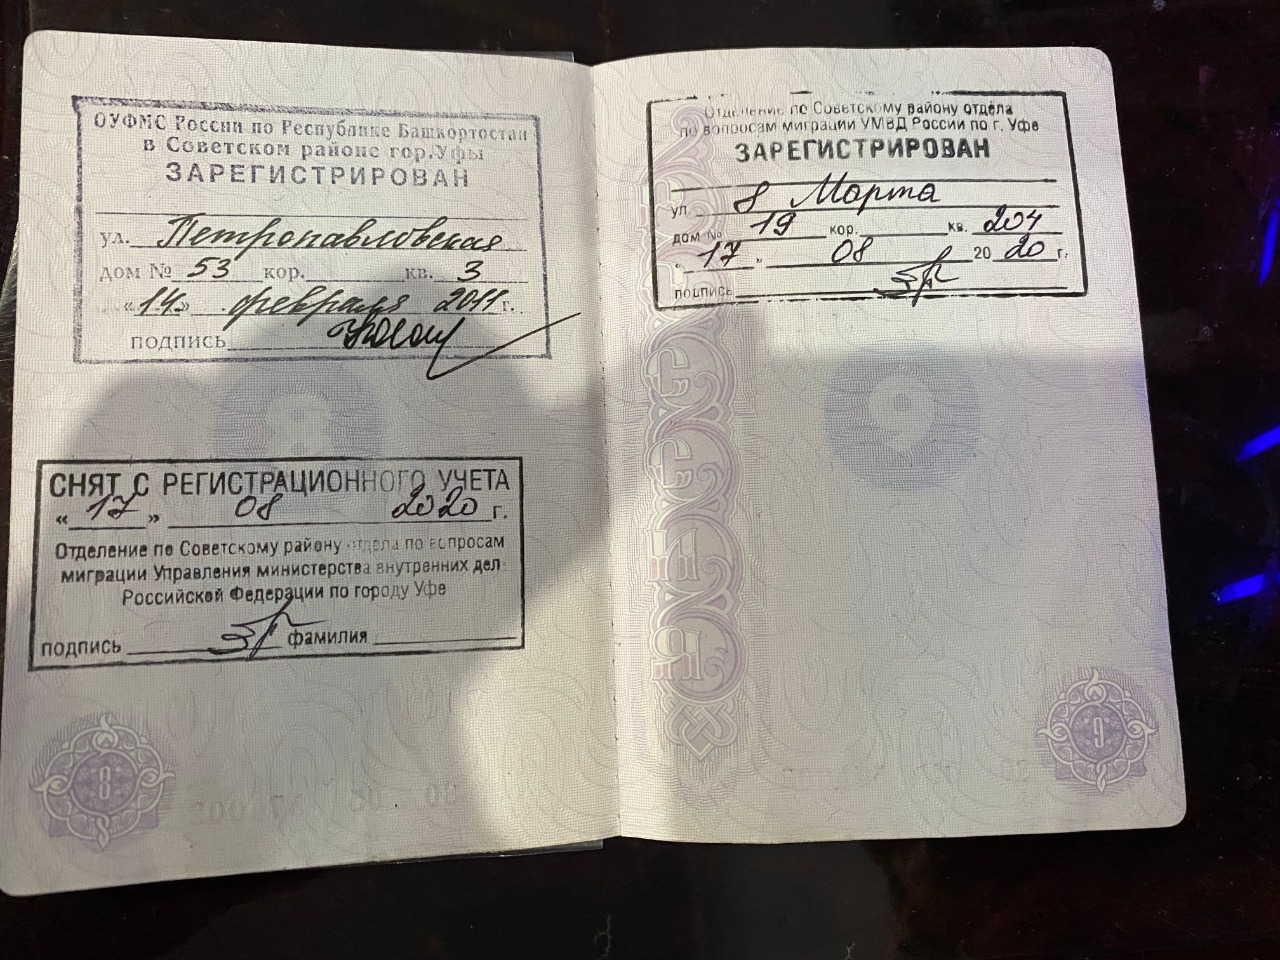 ОУФМС России по Республике Башкортостан
в Советском районе гор.Уфы
ЗАРЕГИСТРИРОВАН
ул. Петропавловская
дом № 53 кор. кв. 3
«14» февраля 2011 г.
подпись
СНЯТ С РЕГИСТРАЦИОННОГО УЧЕТА
«17» 08 2020 г.
Отделение по Советскому району отдела по вопросам
миграции Управления министерства внутренних дел
Российской Федерации по городу Уфе
подпись фамилия
8
Отделение по Советскому району отдела
по вопросам миграции УМВД России по г. Уфе
ЗАРЕГИСТРИРОВАН
ул. 8 Марта
дом № 19 кор. кв. 204
"17" 08 2020 г.
подпись
РОССИЯ
9